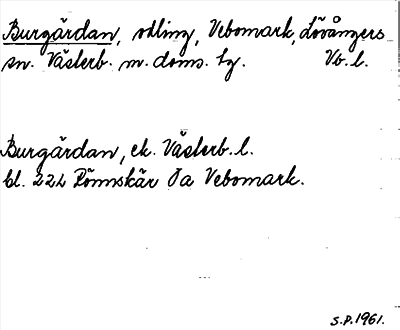 Burgärdan, odling, Vebomark, Lövångers
sn. Västerb. m. doms. tg. Vb. l.
Burgärdan, ek. Västerb. l.
bl. 22L Rönnskär Ja Vebomark.
S.P. 1961.